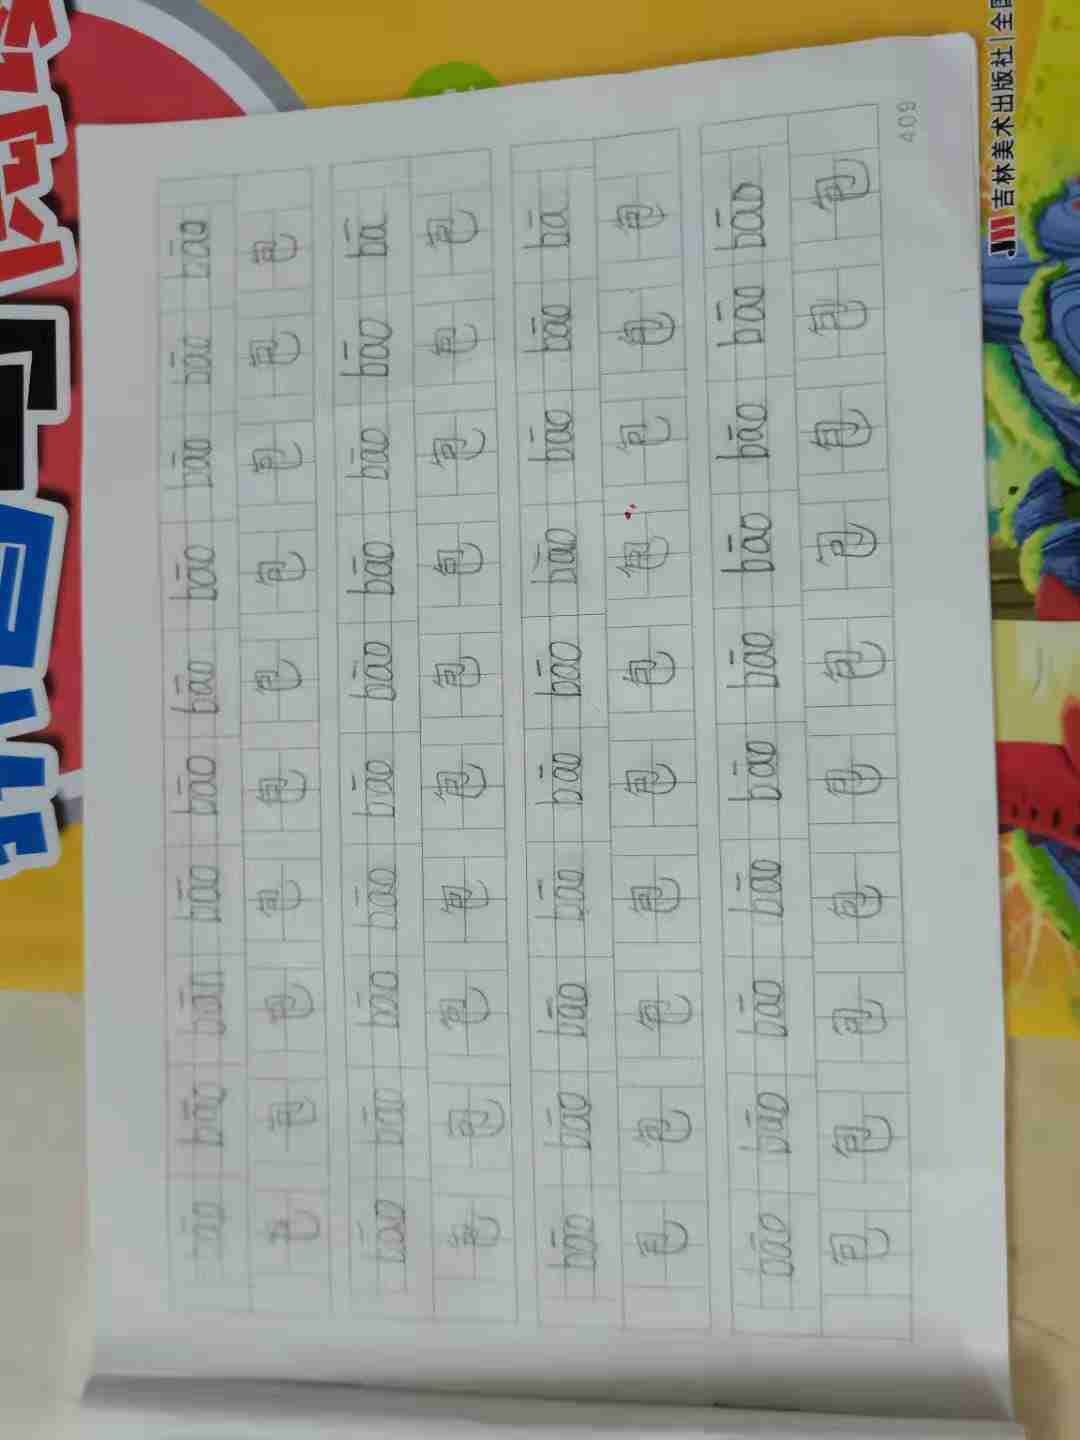 bāo bāo bāo bāo bāo bāo bāo bāo bāo bāo
包 包 包 包 包 包 包 包 包 包
bāo bāo bāo bāo bāo bāo bāo bāo bāo bā
包 包 包 包 包 包 包 包 包 包
bāo bāo bāo bāo bāo bāo bāo bāo bāo bā
包 包 包 包 包 包 包 包 包 包
bāo bāo bāo bāo bāo bāo bāo bāo bāo bāo
包 包 包 包 包 包 包 包 包 包
409
吉林美术出版社|全国